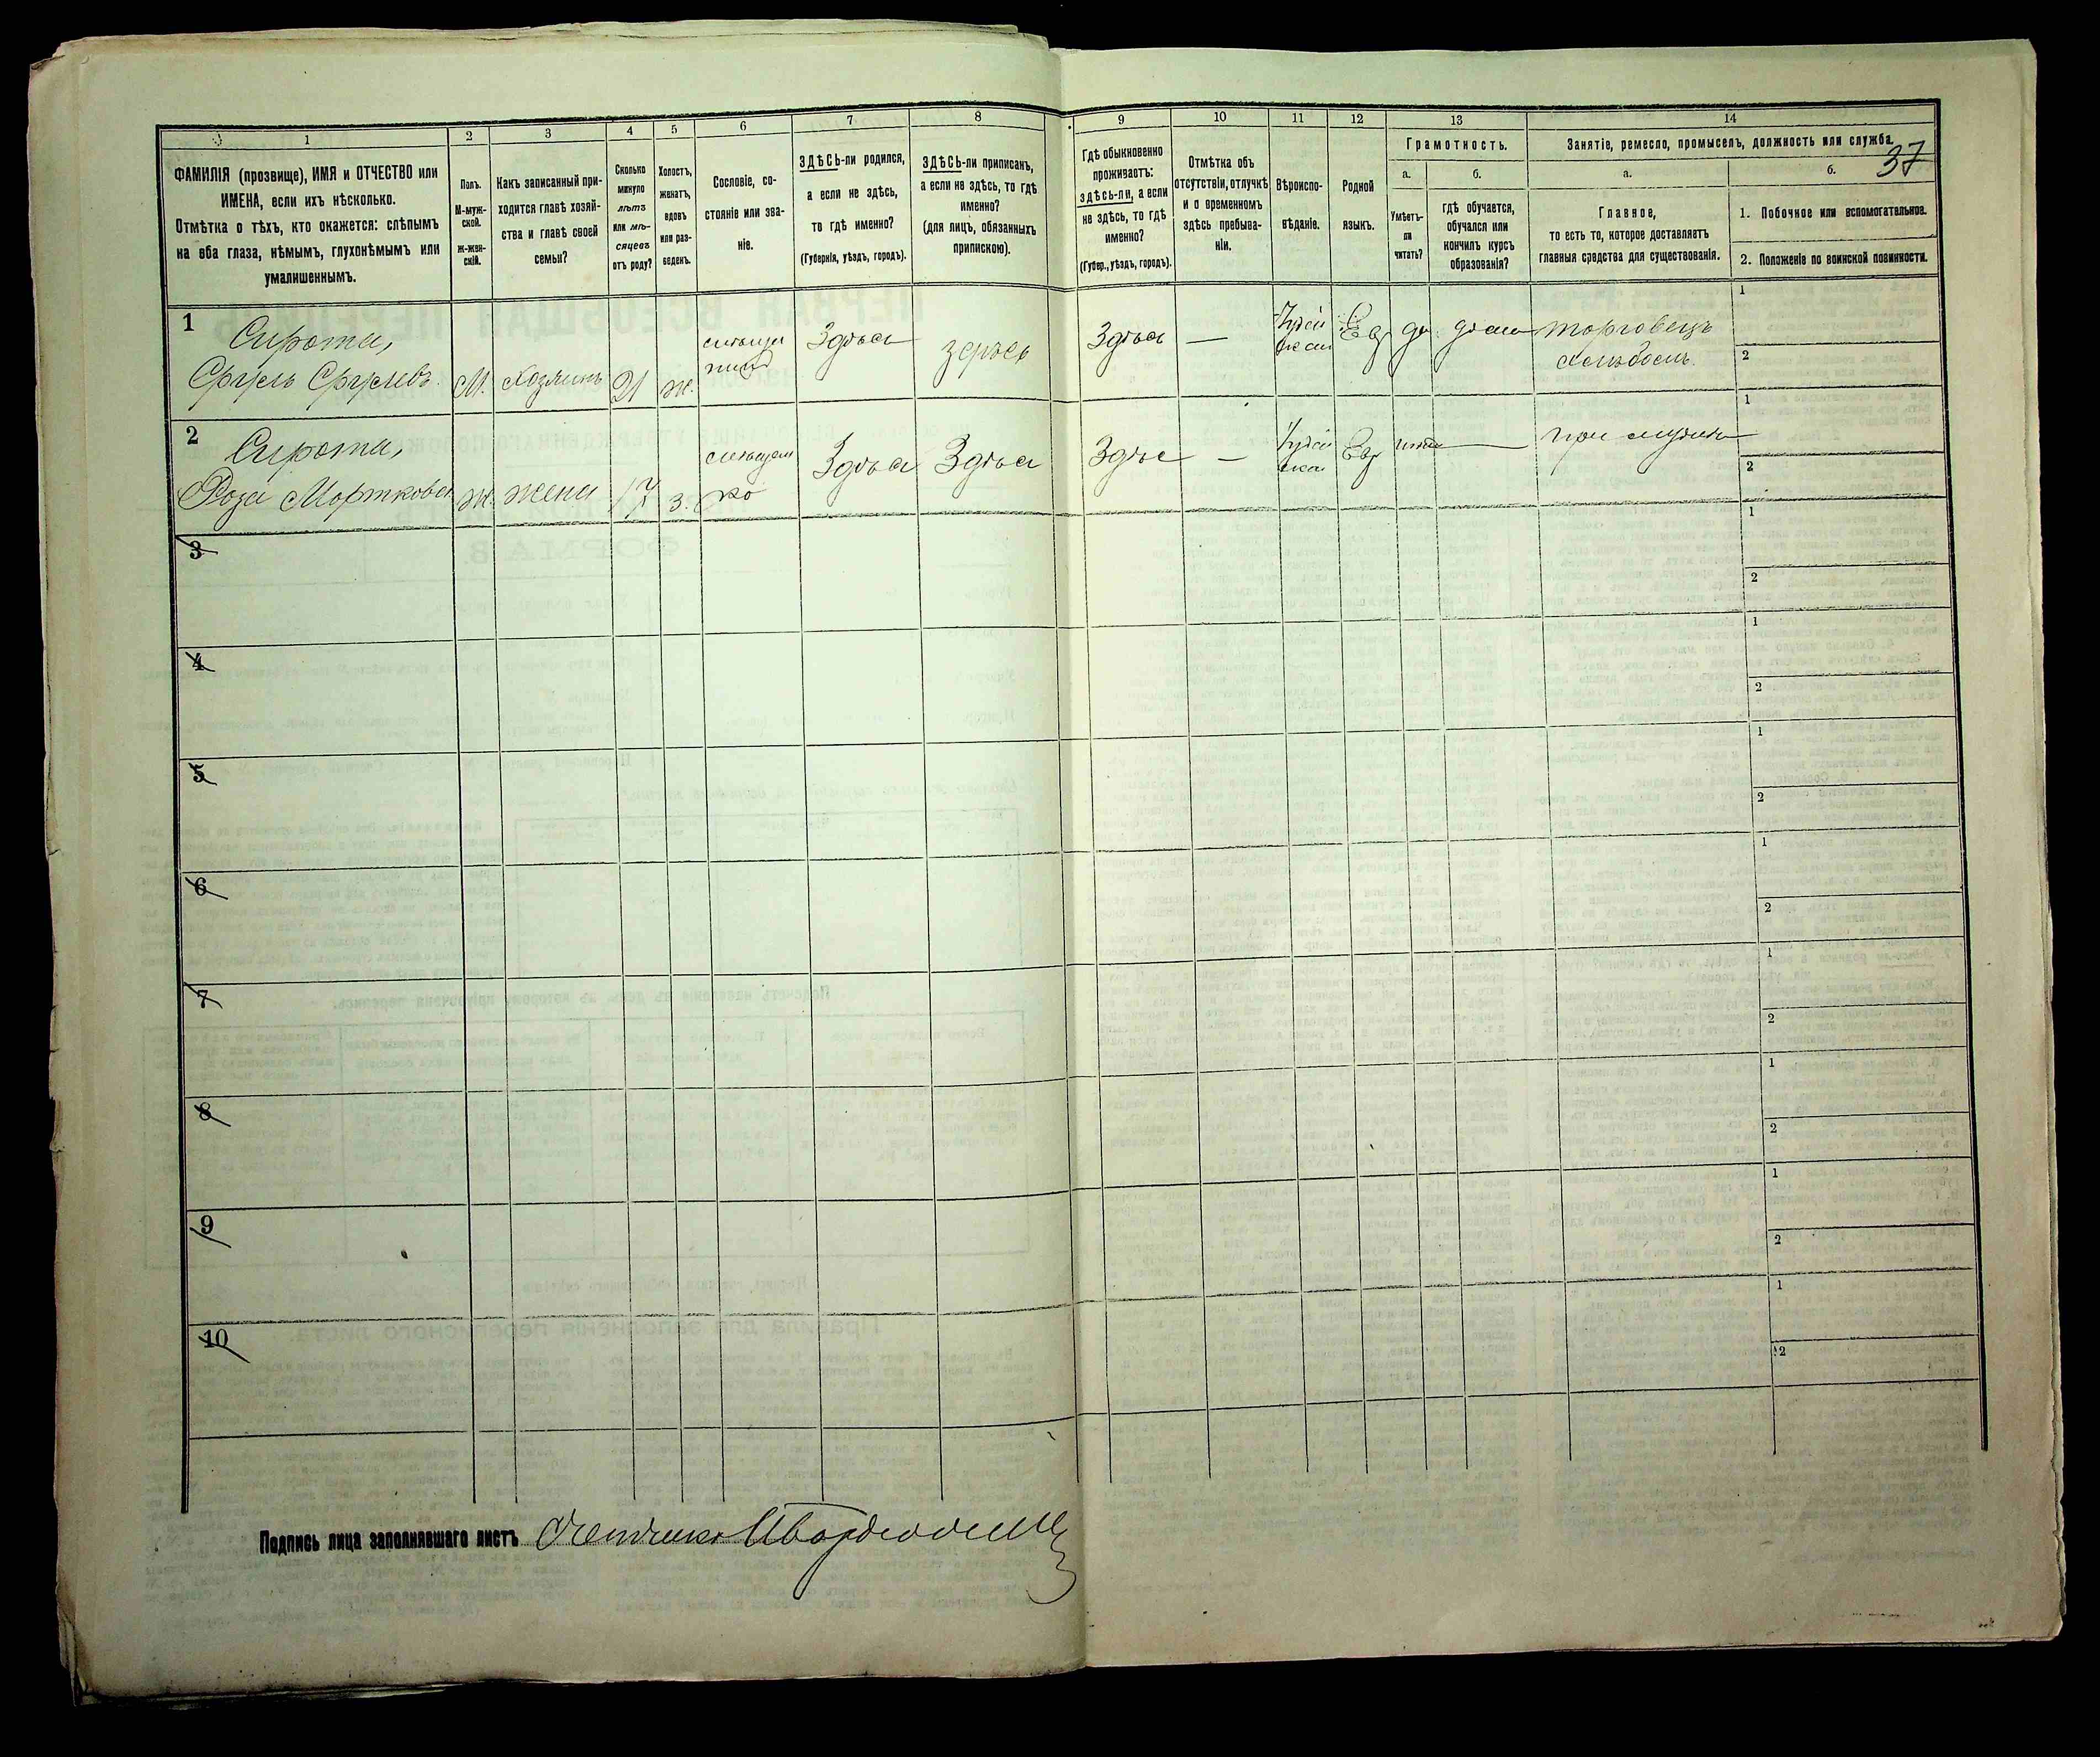 37
1
2
3
4
5
6
7
8
9
10
11
12
13
14
ФАМИЛІЯ (прозвище), ИМЯ и ОТЧЕСТВО или
ИМЕНА, если ихъ нѣсколько.
Отмѣтка о тѣхъ, кто окажется: слѣпымъ
на оба глаза, нѣмымъ, глухонѣмымъ или
умалишеннымъ.
Полъ.
М-муж-
ской.
Ж-жен-
скій.
Какъ записанный при-
ходится главѣ хозяй-
ства и главѣ своей
семьи?
Сколько
минуло
лѣтъ
или мѣ-
сяцевъ
отъ роду?
Холостъ,
женатъ,
вдовъ
или раз-
веденъ.
Сословіе, со-
стояніе или зва-
ніе.
ЗДѢСЬ-ли родился,
а если не здѣсь,
то гдѣ именно?
(Губернія, уѣздъ, городъ).
ЗДѢСЬ-ли приписанъ,
а если не здѣсь, то гдѣ
именно?
(для лицъ, обязанныхъ
припискою).
Гдѣ обыкновенно
проживаетъ:
здѣсь-ли, а если
не здѣсь, то гдѣ
именно?
(Губер., уѣздъ, городъ).
Отмѣтка объ
отсутствіи, отлучкѣ
и о временномъ
здѣсь пребыва-
ніи.
Вѣроиспо-
вѣданіе.
Родной
языкъ.
Грамотность.
а.
Умѣетъ-
ли
читать?
б.
гдѣ обучается,
обучался или
кончилъ курсъ
образованія?
Занятіе, ремесло, промыселъ, должность или служба.
а.
Главное,
то есть то, которое доставляетъ
главныя средства для существованія.
б.
1. Побочное или вспомогательное.
2. Положеніе по воинской повинности.
1
Сирота,
Сруль Срулевъ.
М. Хозяинъ 21 ж.
Здѣсь
здѣсь
Здѣсь —
Іудей
ская
Евр
да
дома
торговецъ
хлѣбомъ.
1
2
2
Сирота,
Роза Мортковна
ж. жена 17 з.
мѣщан
ка
Здѣсь
Здѣсь
Здѣсь —
Іудей
ская
Евр
нѣтъ —
при мужѣ
1
2
3
1
2
4
1
2
5
1
2
6
1
2
7
1
2
8
1
2
9
1
2
10
1
2
Подпись лица заполнявшаго листъ Счетчикъ